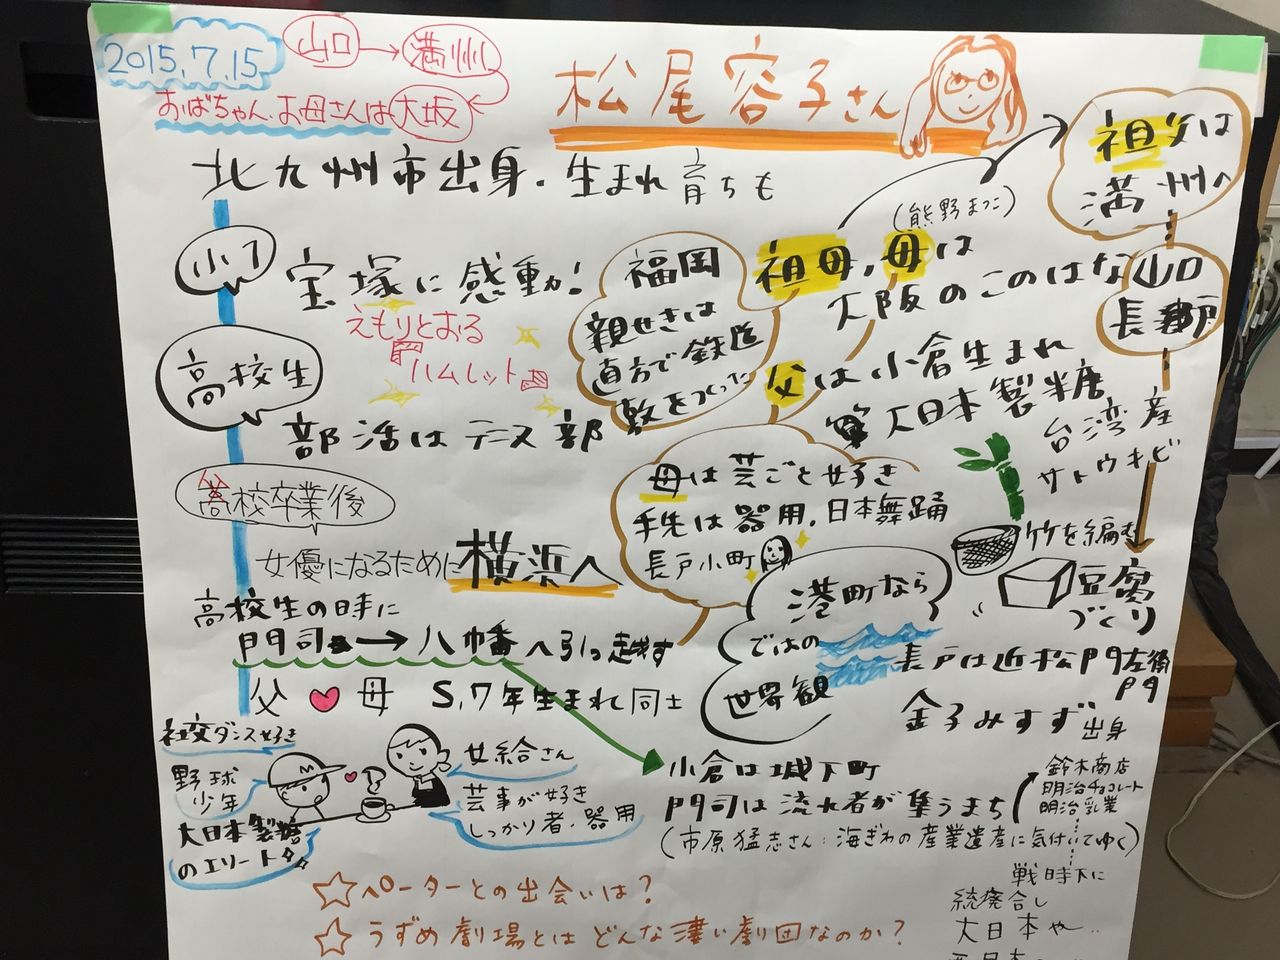 2015.7.15
山口→満州
おばちゃん.お母さんは大坂
松尾容子さん
北九州市出身.生まれ育ちも
小1
宝塚に感動!
えもりとおる
ハムレット
高校生
部活はテニス部
高校卒業後
女優になるために横浜へ
高校生の時に
門司→八幡へ引っ越す
父♥母 S.7年生まれ同士
社交ダンス好き
野球
少年
大日本製糖
のエリート
女給さん
芸事が好き
しっかり者.器用
祖父は
満州へ
山口
長瀞
(熊野まつこ)
祖母.母は
大阪のこのはな
福岡
親せきは
直方で鉄道
敷をつくった
父は小倉生まれ
大日本製糖
台湾産
サトウキビ
母は芸ごと好き
手先は器用.日本舞踊
長戸小町
竹を編む
豆腐
づくり
港町なら
ではの
世界観
長戸は近松門左衛
門
金子みすず出身
小倉は城下町
門司は流れ者が集うまち
鈴木商店
明治チョコレート
明治乳業
(市原猛志さん:海ぎわの産業遺産に気付いてゆく)
戦時下に
統廃合し
大日本や..
☆ペーターとの出会いは?
☆うずめ劇場とはどんな凄い劇団なのか?